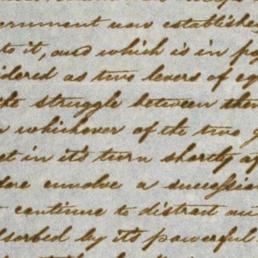 ernment now established
to it, and which is in po
idered as two levers of eq
the struggle between them
n whichever of the two g
et in it's turn shortly af
fore envolve a succession
continue to distract our
bsorbed by it's powerful